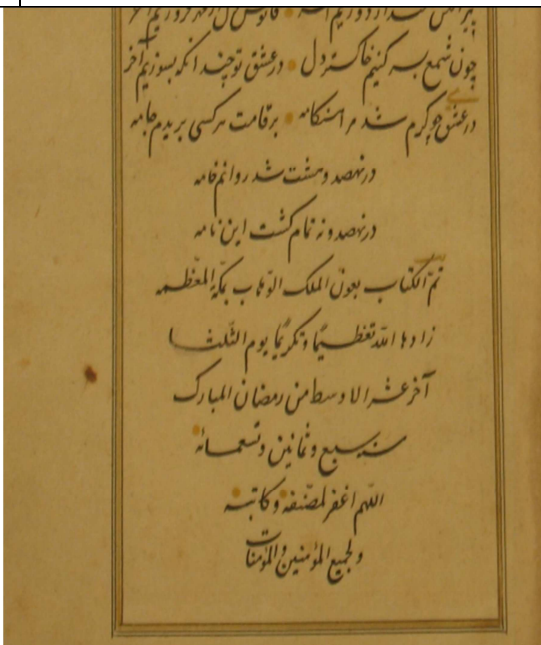 چون شمع بسر کنیم خاکستر دل در عشق تو چند انکه بسوزیم آخر
در عشق چو گرم شد مرا هنگامه بر قامت هر کسی بریدم جامه
در نهصد و هشت شد روانم خامه
در نهصد و نه تمام گشت این نامه
تم الکتاب بعون الملک الوهاب بمکة المعظمه
زادها الله تعظیمًا و تکریمًا یوم الثلثا
آخر عشر الاوسط من رمضان المبارک
سنه سبع و ثمانین و تسعمائه
اللهم اغفر لمصنفه و کاتبه
و لجمیع المؤمنین و المؤمنات